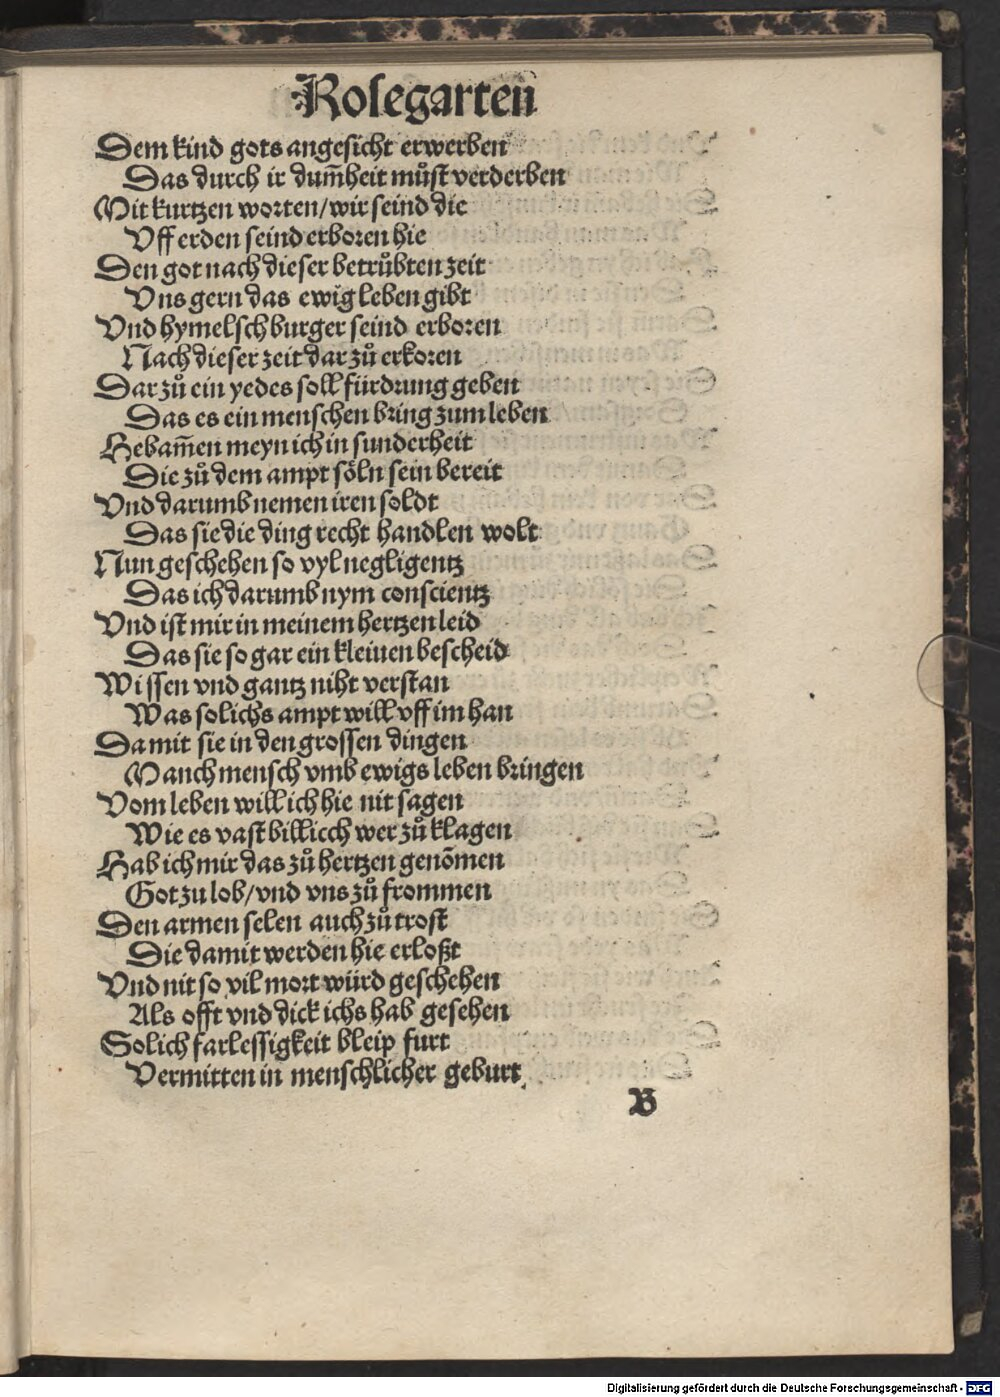 Rosegarten
Dem kind gots angesicht erwerben
Das durch ir dum̄heit můst verderben
Mit kurtzen worten/wir seind die
Vff erden seind erboren hie
Den got nach dieser betrůbten zeit
Vns gern das ewig leben gibt
Vnd hymelsch burger seind erboren
Nach dieser zeit dar zů erkoren
Dar zů ein yedes soll fürdrung geben
Das es ein menschen bring zum leben
Hebam̄en meyn ich in sunderheit
Die zů dem ampt söln sein bereit
Vnd darumb nemen iren soldt
Das sie die ding recht handlen wolt
Nun geschehen so vyl negligentz
Das ich darumb nym conscientz
Vnd ist mir in meinem hertzen leid
Das sie so gar ein kleinen bescheid
Wissen vnd gantz niht verstan
Was solichs ampt will vff im han
Da mit sie in den grossen dingen
Manch mensch vmb ewigs leben bringen
Vom leben will ich hie nit sagen
Wie es vast billicch wer zů klagen
Hab ich mir das zů hertzen genōmen
Got zu lob/vnd vns zů frommen
Den armen selen auch zů trost
Die damit werden hie erloßt
Vnd nit so vil mort würd geschehen
Als offt vnd dick ichs hab gesehen
Solich farlessigkeit bleip furt
Vermitten in menschlicher geburt.
B
Digitalisierung gefördert durch die Deutsche Forschungsgemeinschaft - DFG